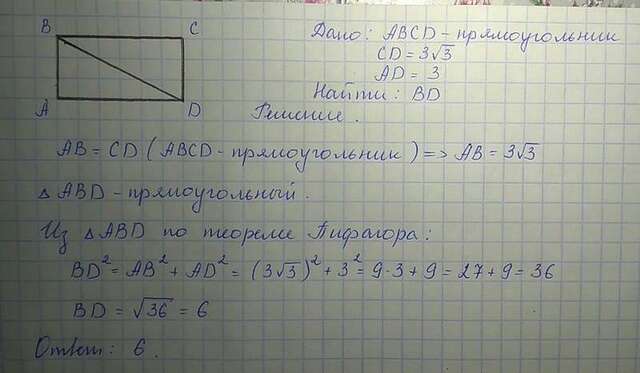 B C
A D
Дано: ABCD - прямоугольник
CD = 3√3
AD = 3
Найти: BD
Решение.
AB = CD (ABCD - прямоугольник) => AB = 3√3
△ ABD - прямоугольный.
Из △ ABD по теореме Пифагора:
BD² = AB² + AD² = (3√3)² + 3² = 9·3 + 9 = 27 + 9 = 36
BD = √36 = 6
Ответ: 6.